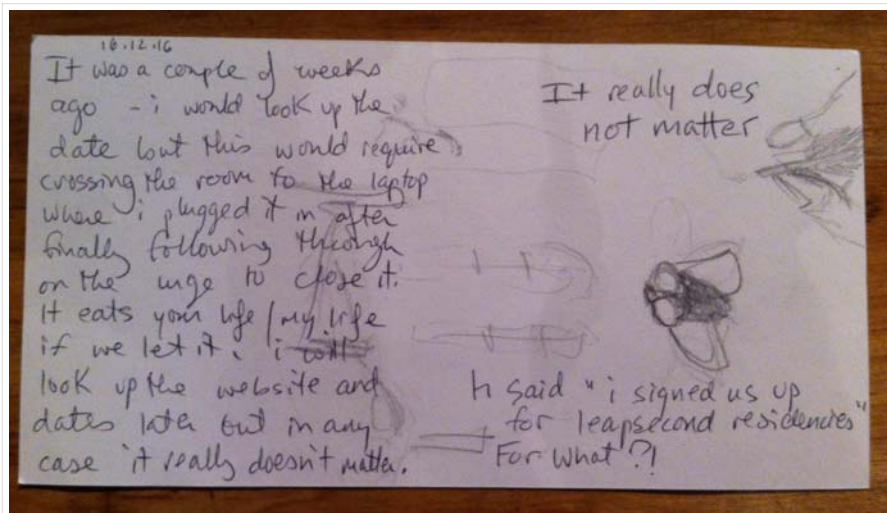 16.12.16
It was a couple of weeks
ago - i would look up the
date but this would require
crossing the room to the laptop
where i plugged it in after
finally following through
on the urge to close it.
It eats your life / my life
if we let it. i will
look up the website and
dates later but in any
case it really doesn't matter.
It really does
not matter
h said "i signed us up
for leapsecond residencies"
For what?!